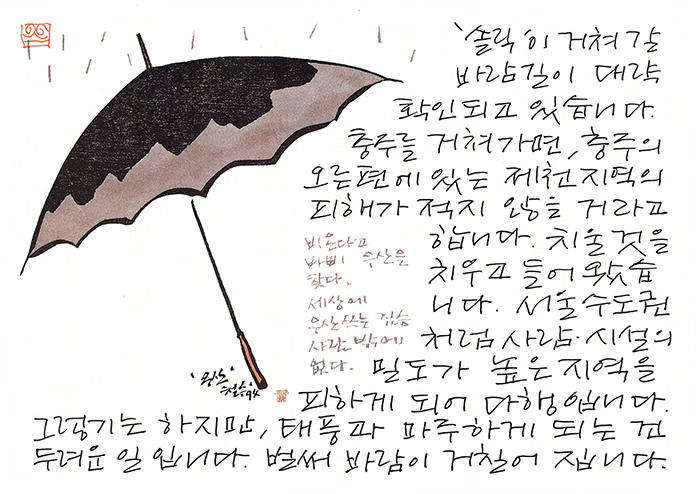 '솔릭'이 거쳐 갈
바람길이 대략
확인되고 있습니다.
충주를 거쳐가면, 충주의
오른편에 있는 제천지역의
피해가 적지 않을 거라고
합니다. 치울 것을
치우고 들어왔습
니다. 서울수도권
처럼 사람·시설의
밀도가 높은 지역을
피하게 되어 다행입니다.
그렇기는 하지만, 태풍과 마주하게 되는 건
두려운 일입니다. 벌써 바람이 거칠어 집니다.
비온다고
바삐 우산을
찾다.
세상에
우산쓰는 짐승
사람밖에
없다.
'우산'
철수94